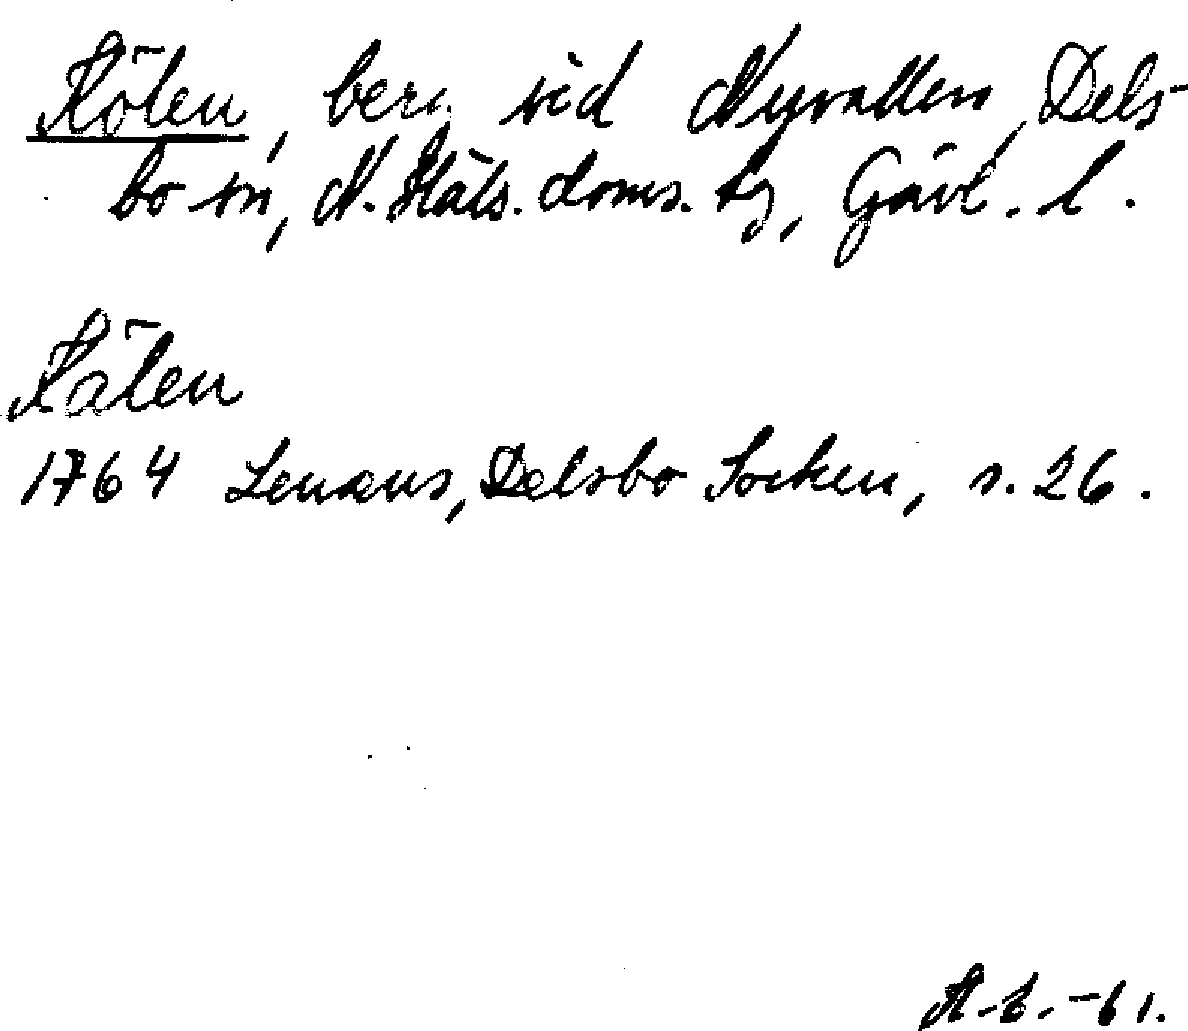 Kölen, berg vid Nyvallen, Dels-
bo sn, N. Häls. doms. tg, Gävl. l.
Kälen
1764 Lenæus, Delsbo Socken, s. 26.